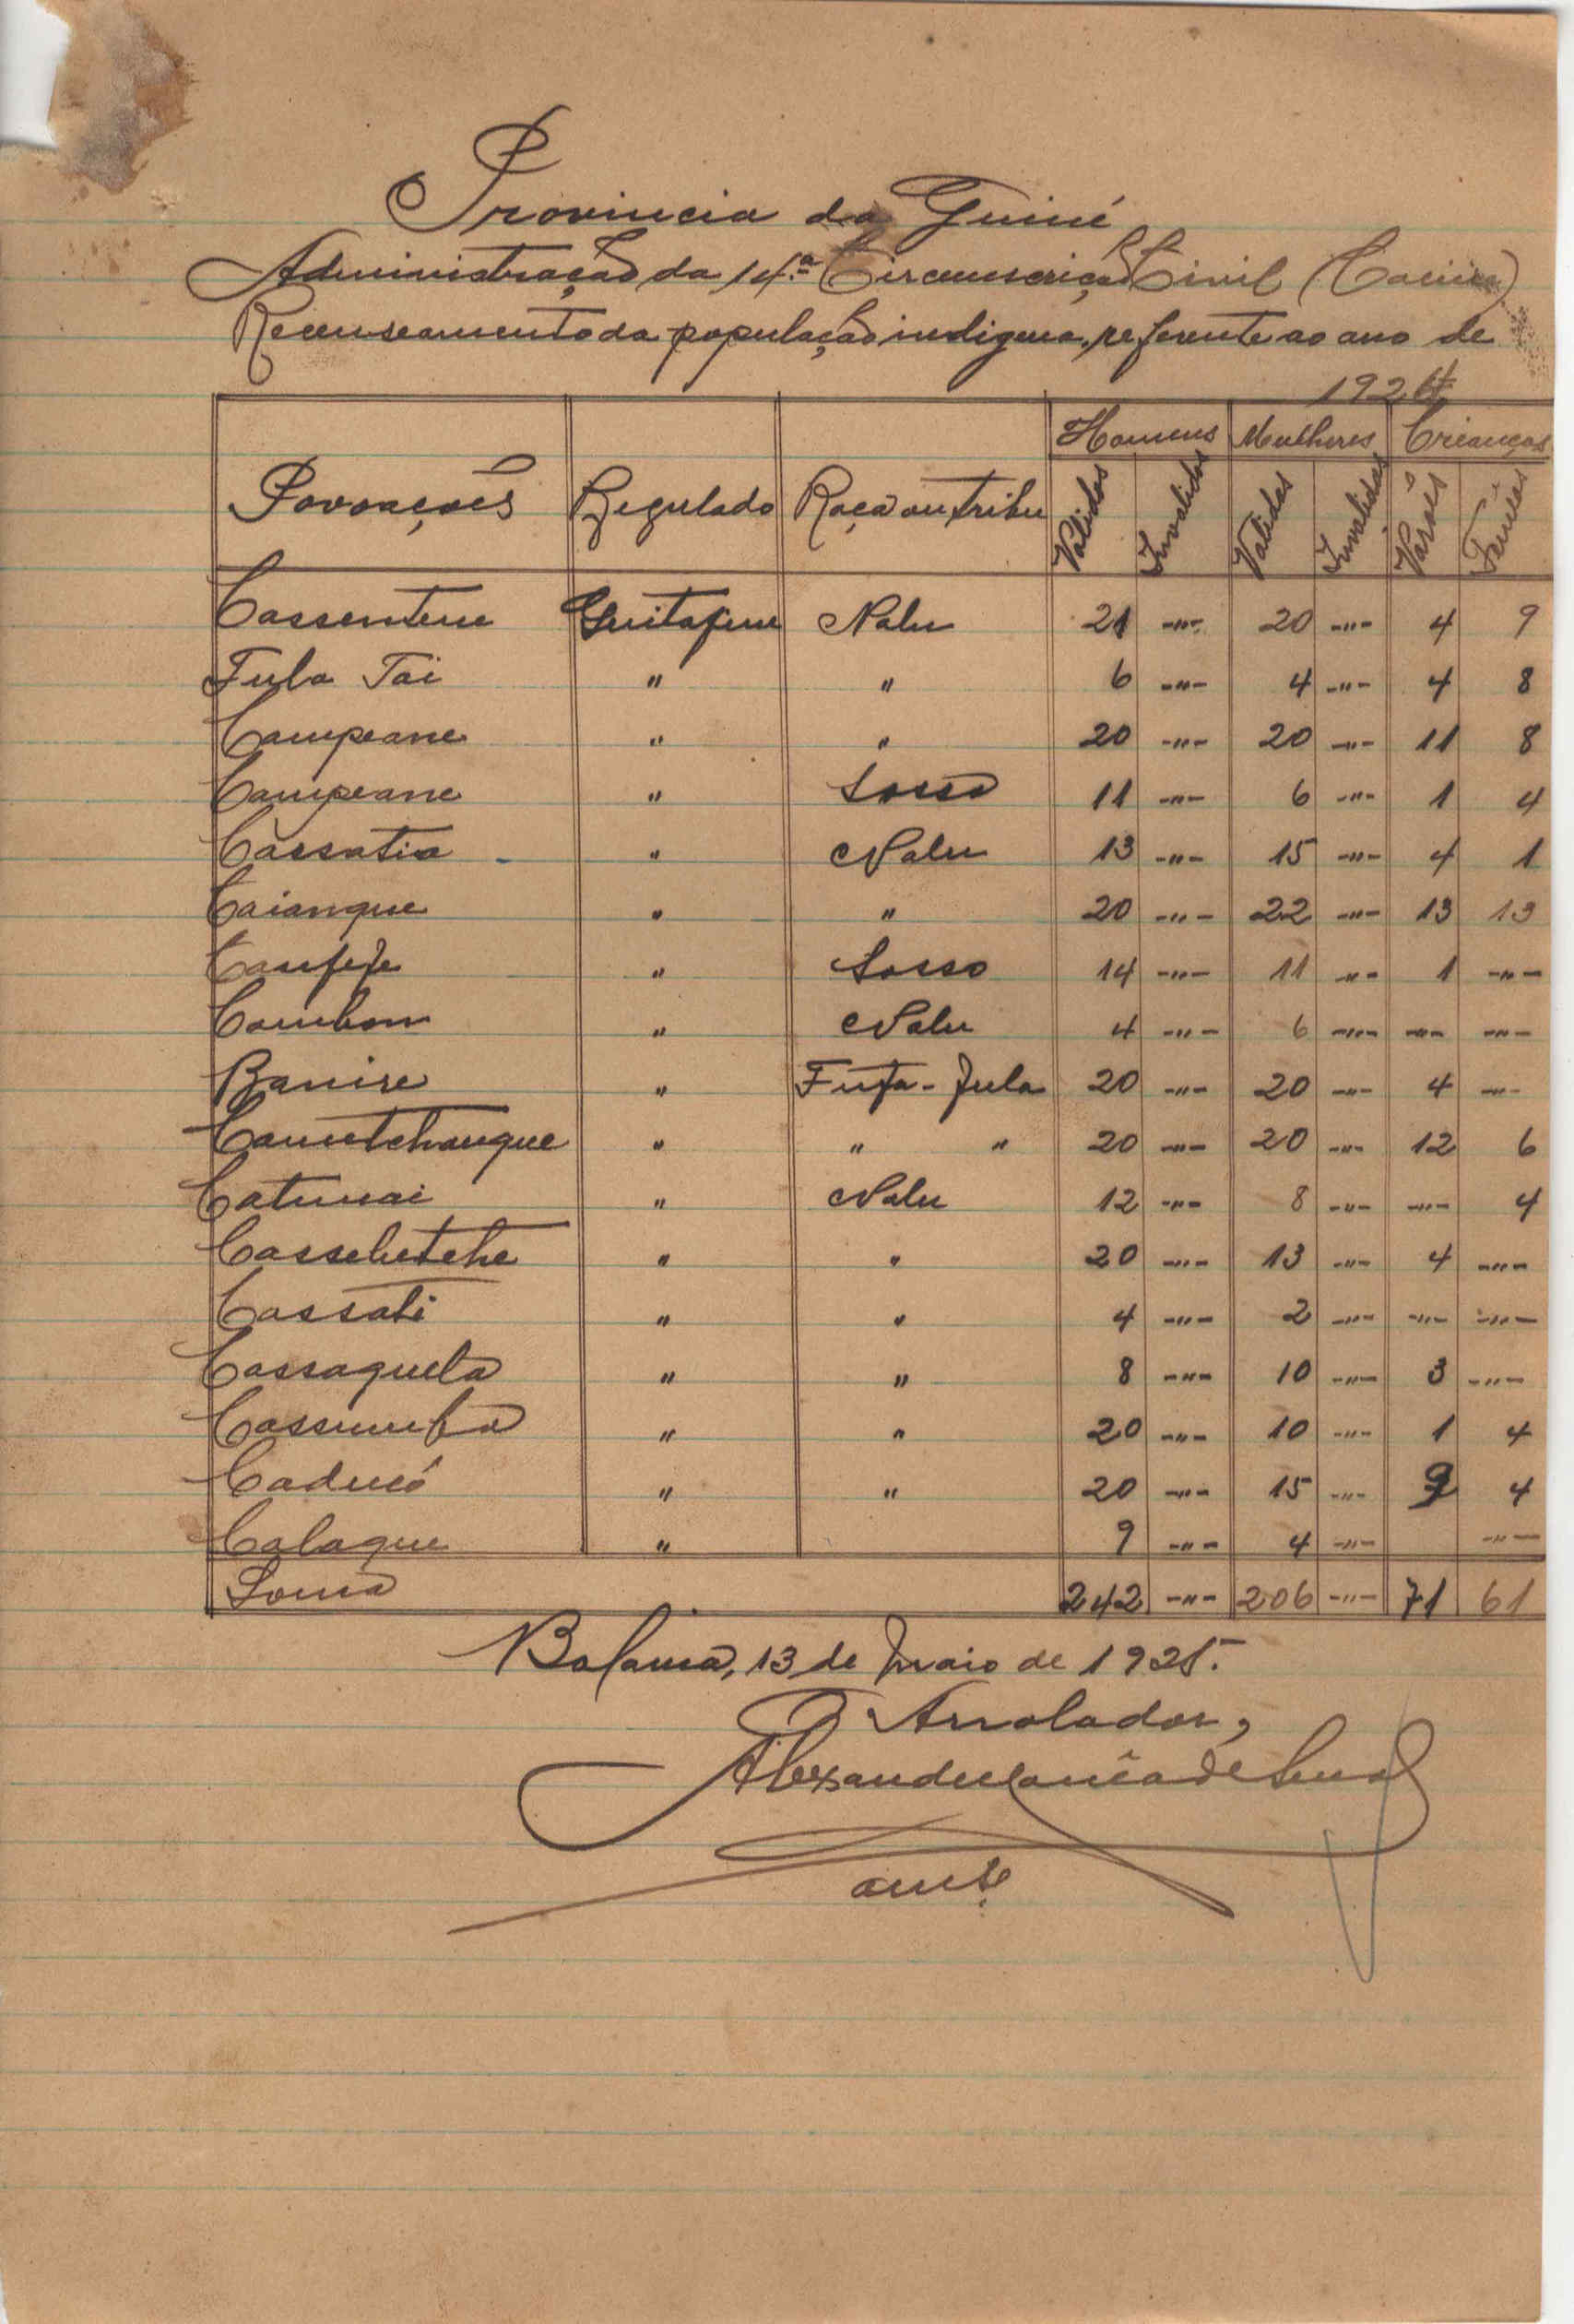 Provincia da Guiné
Administração da 14.ª Circunscrição Civil (Cacine)
Recenseamento da população indigena, referente ao ano de
1924
Povoações Regulado Raça ou tribu Homens Mulheres Crianças
Validos Invalidos Validas Invalidas Varões Femeas
Cassentem Guitafine Nalu 21 -"- 20 -"- 4 9
Fula Tai " " 6 -"- 4 -"- 4 8
Campeane " " 20 -"- 20 -"- 11 8
Campeane " Sosso 11 -"- 6 -"- 1 4
Cassatia " Nalu 13 -"- 15 -"- 4 1
Caianque " " 20 -"- 22 -"- 13 13
Canfefe " Sosso 14 -"- 11 -"- 1 -"-
Cambom " Nalu 4 -"- 6 -"- -"- -"-
Banire " Futa-Fula 20 -"- 20 -"- 4 -"-
Camtchanque " " " 20 -"- 20 -"- 12 6
Catunai " Nalu 12 -"- 8 -"- -"- 4
Cassebetche " " 20 -"- 13 -"- 4 -"-
Cassati " " 4 -"- 2 -"- -"- -"-
Cassaqueta " " 8 -"- 10 -"- 3 -"-
Cassumba " " 20 -"- 10 -"- 1 4
Caducó " " 20 -"- 15 -"- 9 4
Calaque " 9 -"- 4 -"- -"-
Soma 242 -"- 206 -"- 71 61
Bolama, 13 de Maio de 1925.
O Arrolador,
Alexandre de